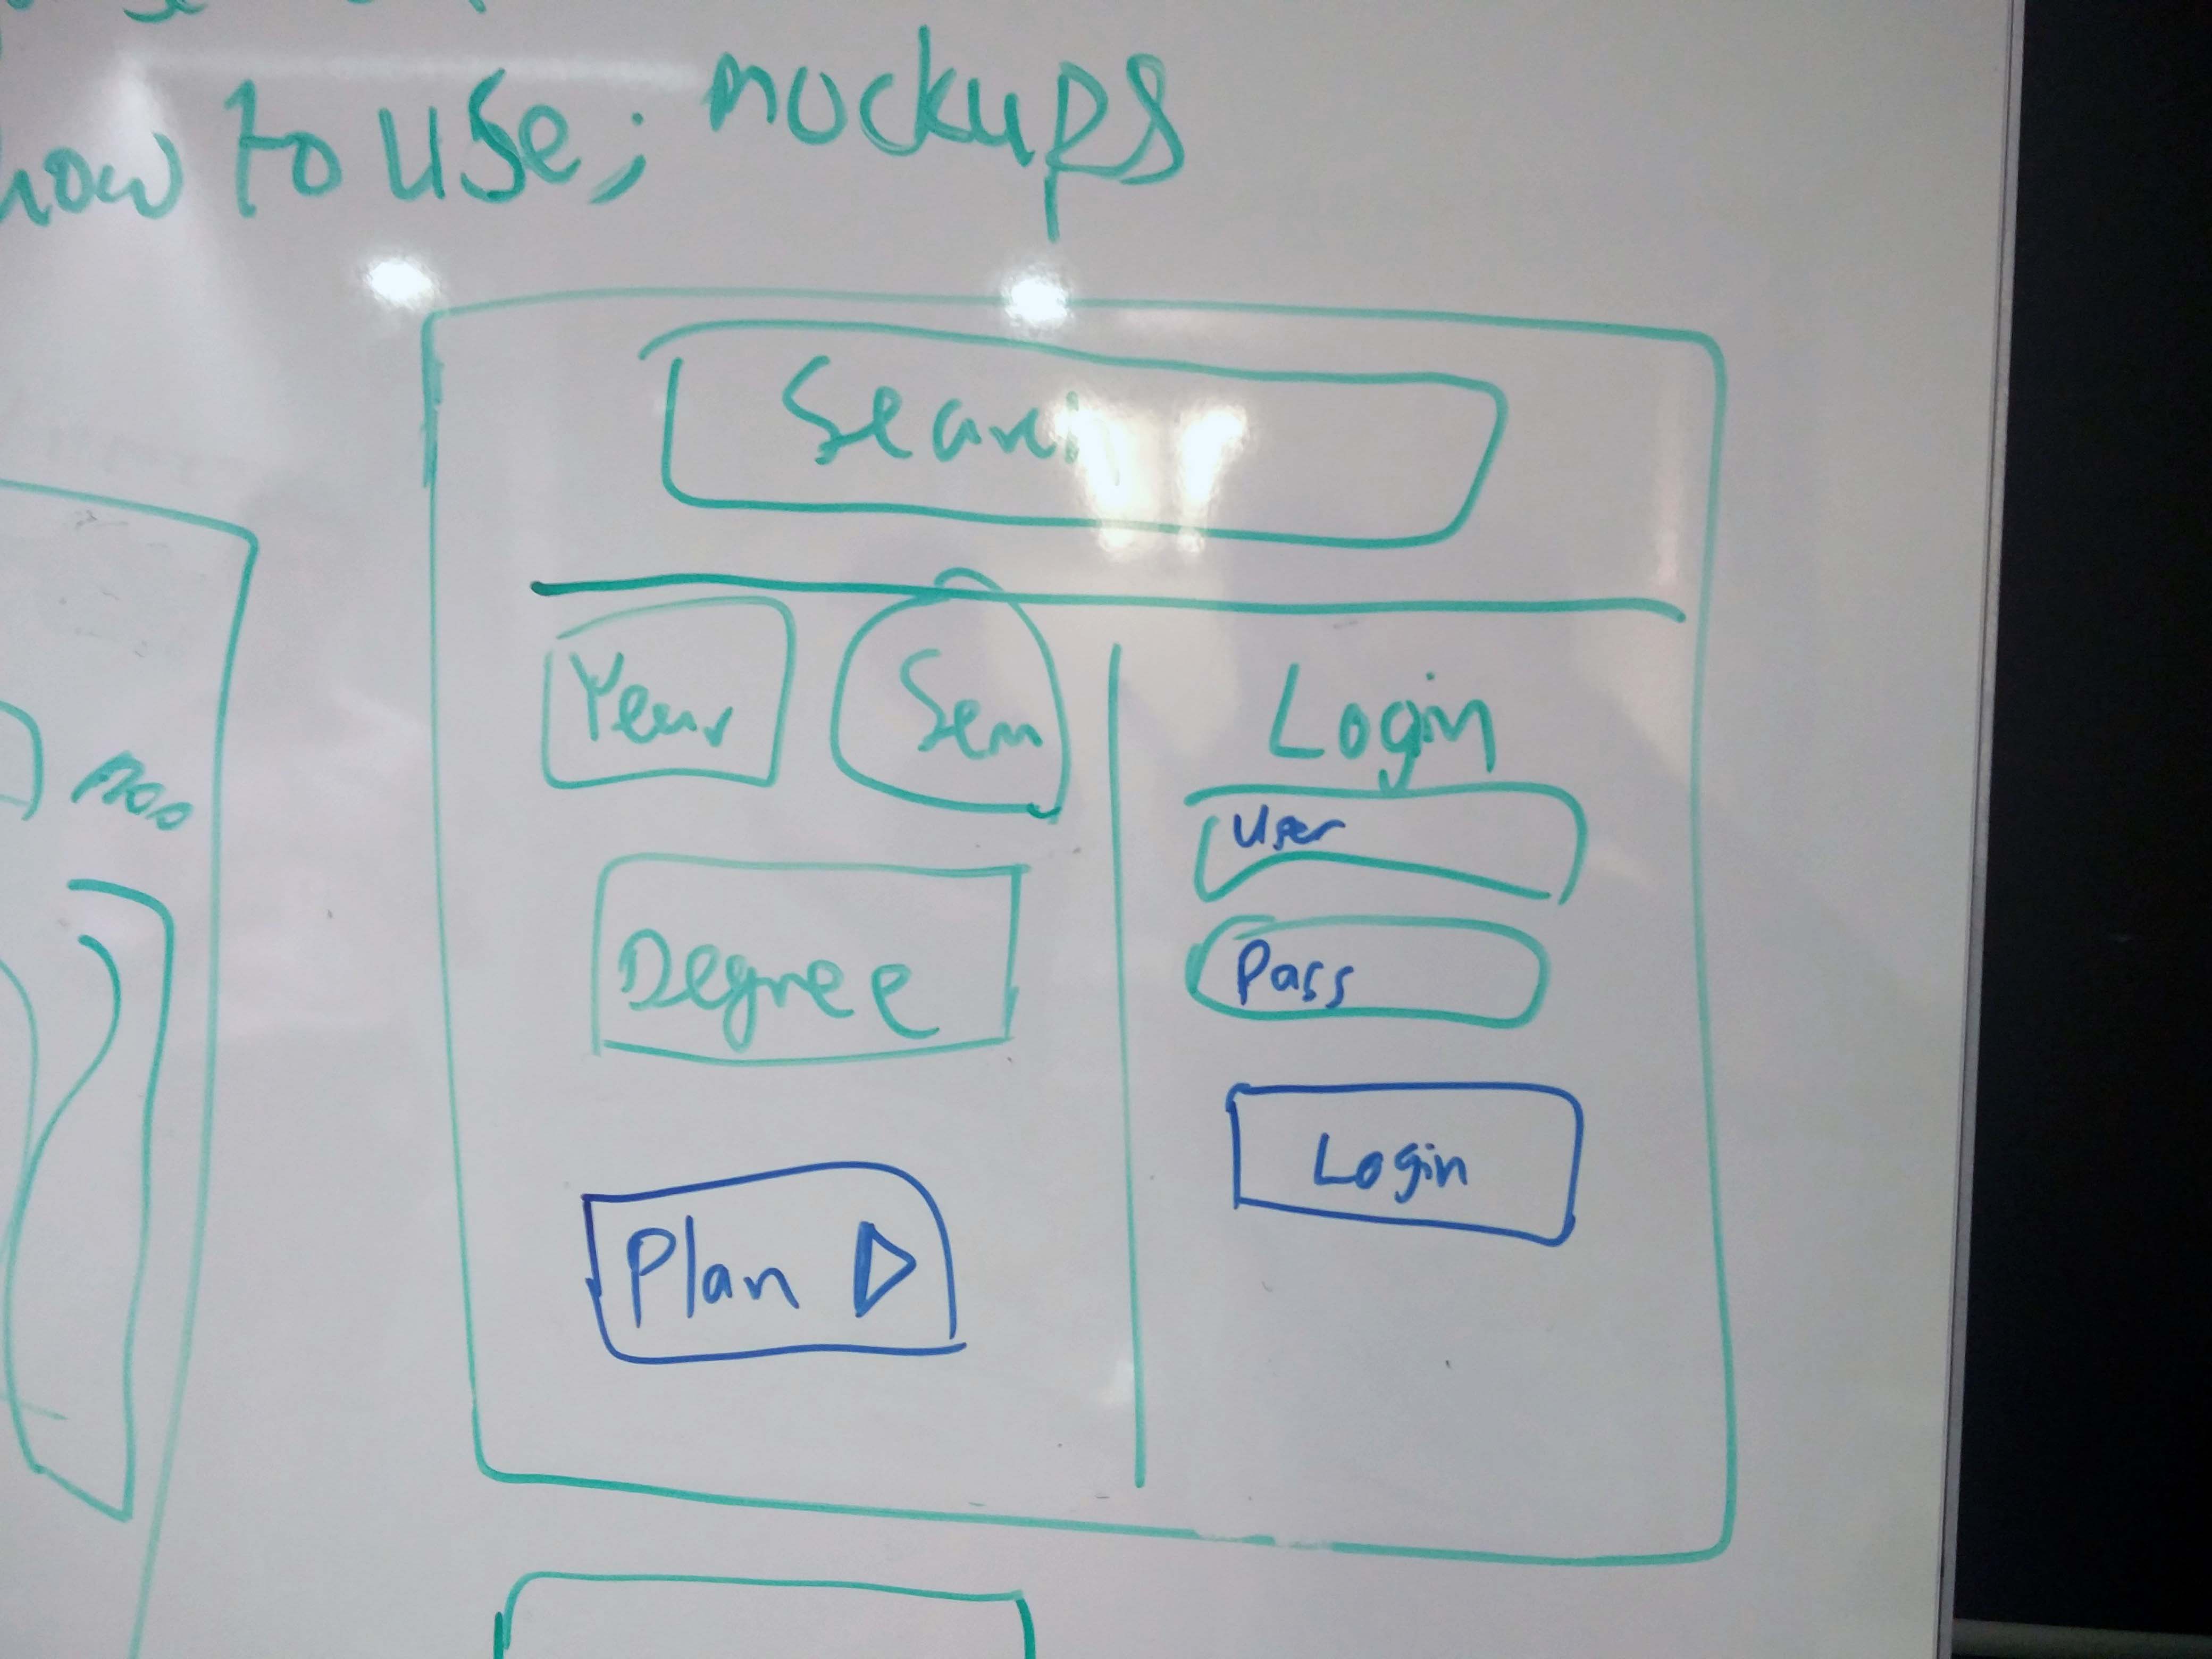 how to use; mockups
Search
Year Sem
Degree
Plan
Login
User
Pass
Login